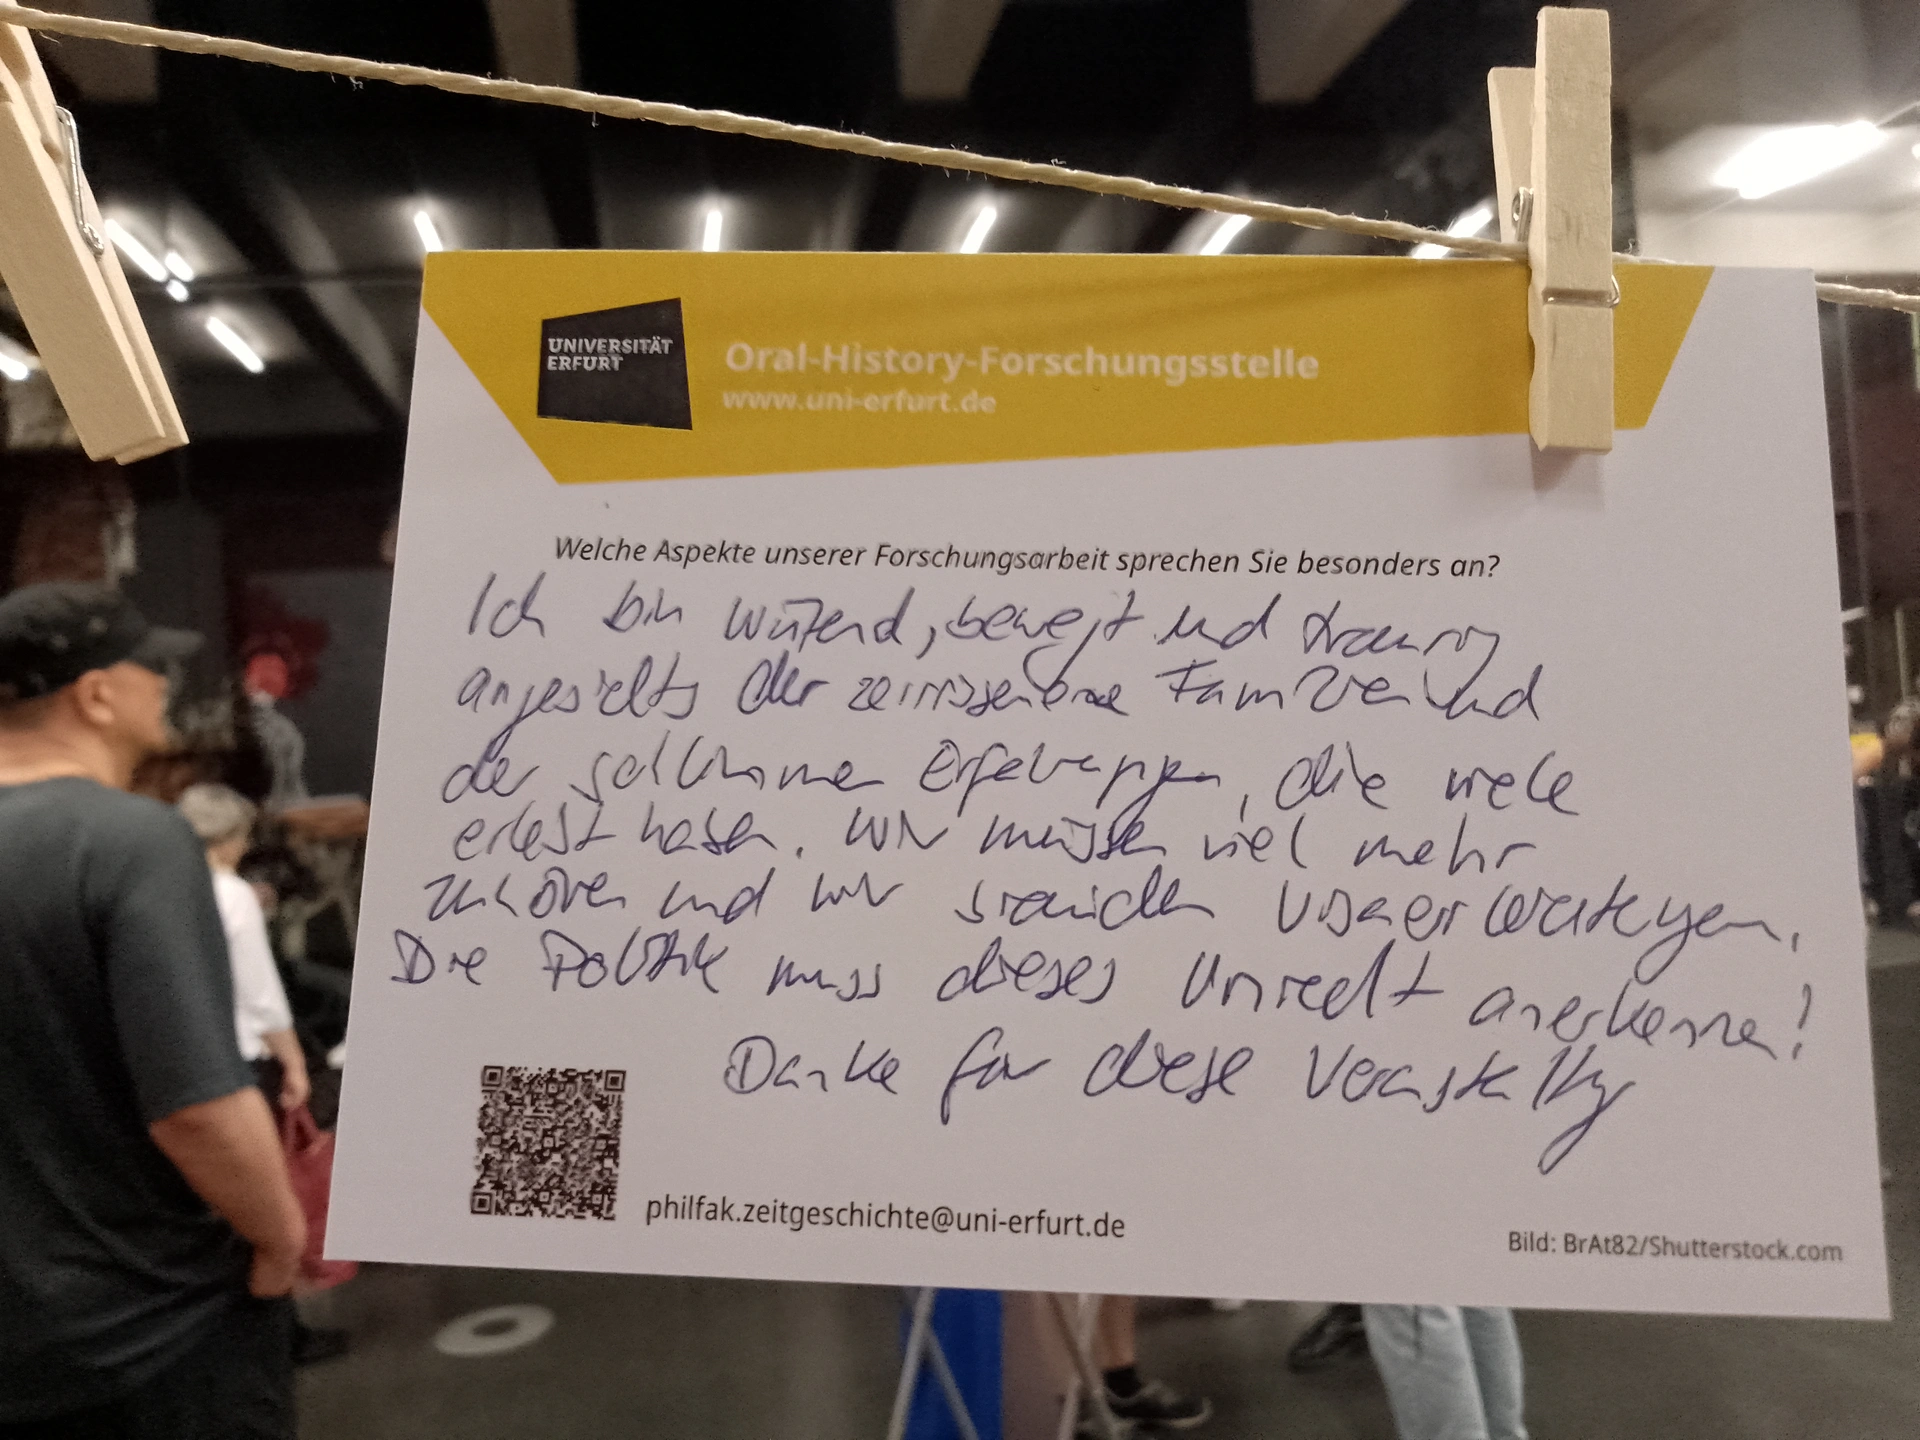 UNIVERSITÄT
ERFURT
Oral-History-Forschungsstelle
www.uni-erfurt.de
Welche Aspekte unserer Forschungsarbeit sprechen Sie besonders an?
Ich bin wütend, bewegt und traurig
angesichts der zerrissenen Familien und
der schlimmen Erfahrungen, die viele
erlebt haben. Wir müssen viel mehr
zuhören und wir brauchen
Die Politik muss dieses Unrecht anerkennen!
Danke für diese Veranstaltung
philfak.zeitgeschichte@uni-erfurt.de
Bild: BrAt82/Shutterstock.com